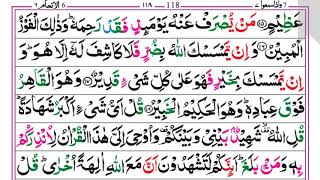 الانعام ٦ 118 ١١٨ واذاسمعوا ٧
عَظِيْمٍ ۝ مَنْ يُّصْرَفْ عَنْهُ يَوْمَىِٕذٍ فَقَدْ رَحِمَهٗ ؕ وَذٰلِكَ الْفَوْزُ
الْمُبِيْنُ ۝ وَاِنْ يَّمْسَسْكَ اللّٰهُ بِضُرٍّ فَلَا كَاشِفَ لَهٗۤ اِلَّا هُوَ ؕ وَ
اِنْ يَّمْسَسْكَ بِخَيْرٍ فَهُوَ عَلٰى كُلِّ شَىْءٍ قَدِيْرٌ ۝ وَهُوَ الْقَاهِرُ
فَوْقَ عِبَادِهٖ ؕ وَهُوَ الْحَكِيْمُ الْخَبِيْرُ ۝ قُلْ اَىُّ شَىْءٍ اَكْبَرُ شَهَادَةً ؕ
قُلِ اللّٰهُ ۙ شَهِيْدٌۢ بَيْنِىْ وَبَيْنَكُمْ ۟ وَاُوْحِىَ اِلَىَّ هٰذَا الْقُرْاٰنُ لِاُنْذِرَكُمْ
بِهٖ وَمَنْۢ بَلَغَ ؕ اَىِٕنَّكُمْ لَتَشْهَدُوْنَ اَنَّ مَعَ اللّٰهِ اٰلِهَةً اُخْرٰى ؕ قُلْ